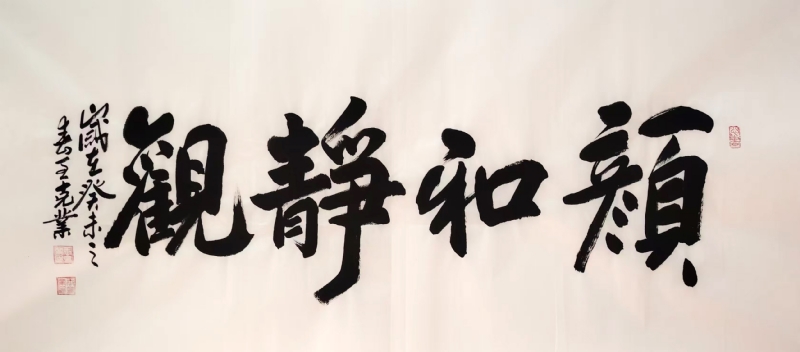 顏和靜觀
歲在癸未之
春王克業